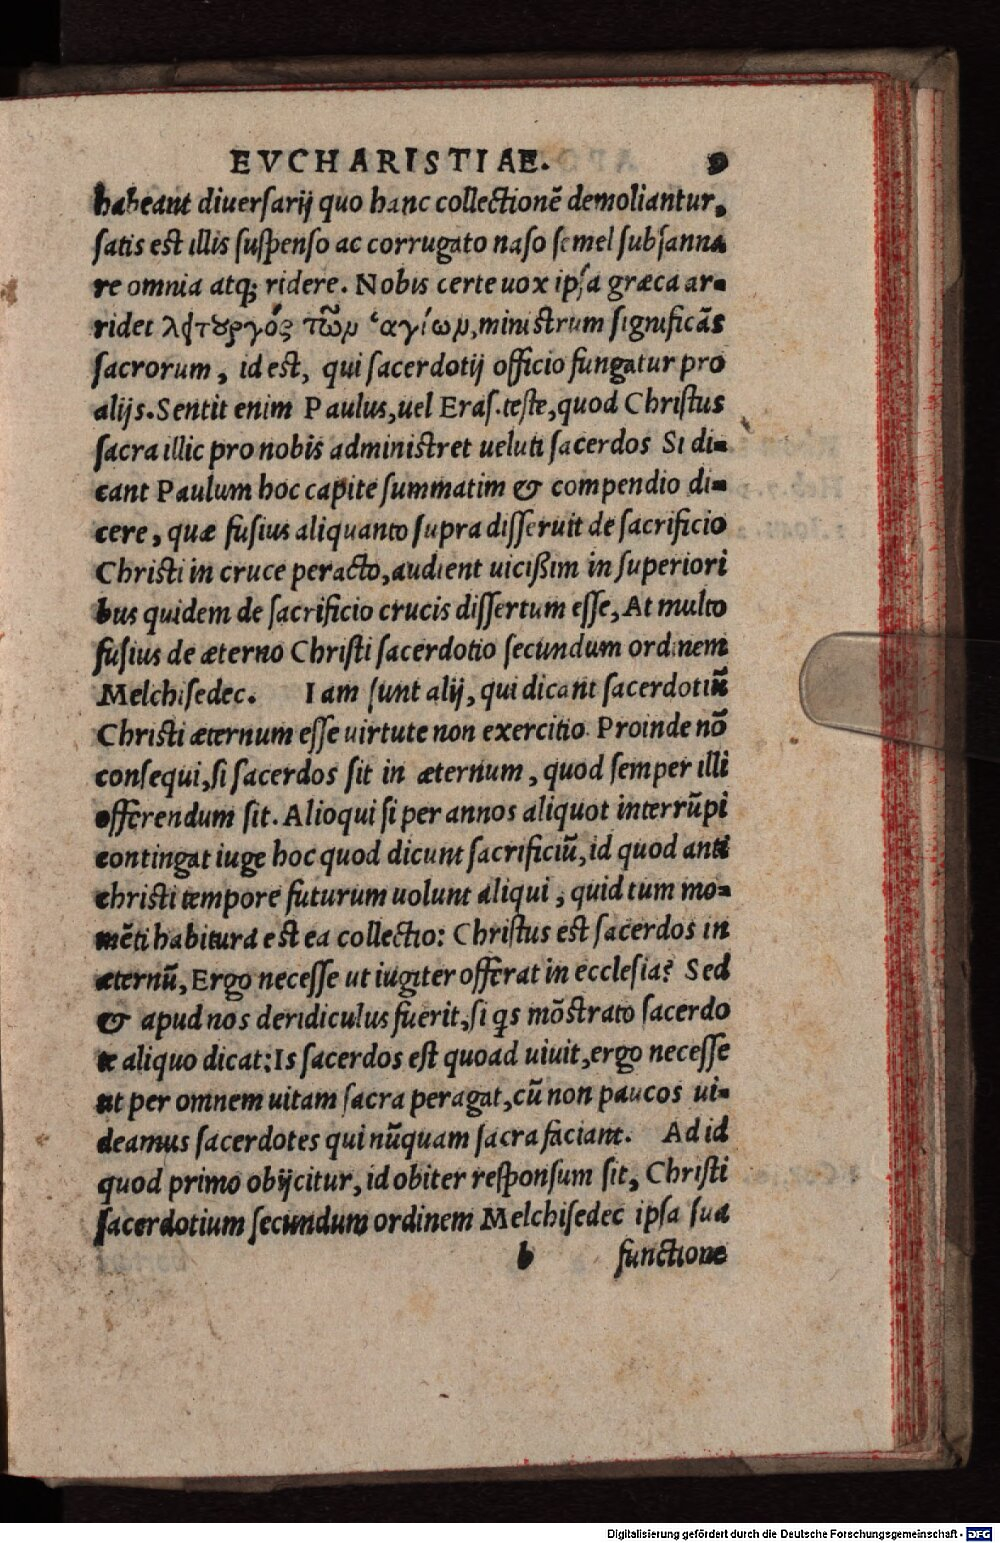 EVCHARISTIAE. 9
habeant diuersarij quo hanc collectionē demoliantur,
satis est illis suspenso ac corrugato naso semel subsanna
re omnia atq; ridere. Nobis certe uox ipsa græca ar-
ridet λειτουργός τῶν ἁγίων, ministrum significãs
sacrorum, id est, qui sacerdotij officio fungatur pro
alijs. Sentit enim Paulus, uel Eras. teste, quod Christus
sacra illic pro nobis administret ueluti sacerdos Si di-
cant Paulum hoc capite summatim & compendio di-
cere, quæ fusius aliquanto supra disseruit de sacrificio
Christi in cruce peracto, audient uicißim in superiori
bus quidem de sacrificio crucis dissertum esse, At multo
fusius de æterno Christi sacerdotio secundum ordinem
Melchisedec. Iam sunt alij, qui dicant sacerdotiũ
Christi æternum esse uirtute non exercitio. Proinde nõ
consequi, si sacerdos sit in æternum, quod semper illi
offerendum sit. Alioqui si per annos aliquot interrũpi
contingat iuge hoc quod dicunt sacrificiũ, id quod anti
christi tempore futurum uolunt aliqui, quid tum mo-
mēti habitura est ea collectio: Christus est sacerdos in
æternũ, Ergo necesse ut iugiter offerat in ecclesia? Sed
& apud nos deridiculus fuerit, si qs mõstrato sacerdo
te aliquo dicat: Is sacerdos est quoad uiuit, ergo necesse
ut per omnem uitam sacra peragat, cũ non paucos ui-
deamus sacerdotes qui nũquam sacra faciant. Ad id
quod primo obijcitur, id obiter responsum sit, Christi
sacerdotium secundum ordinem Melchisedec ipsa sua
b functione
Digitalisierung gefördert durch die Deutsche Forschungsgemeinschaft - DFG